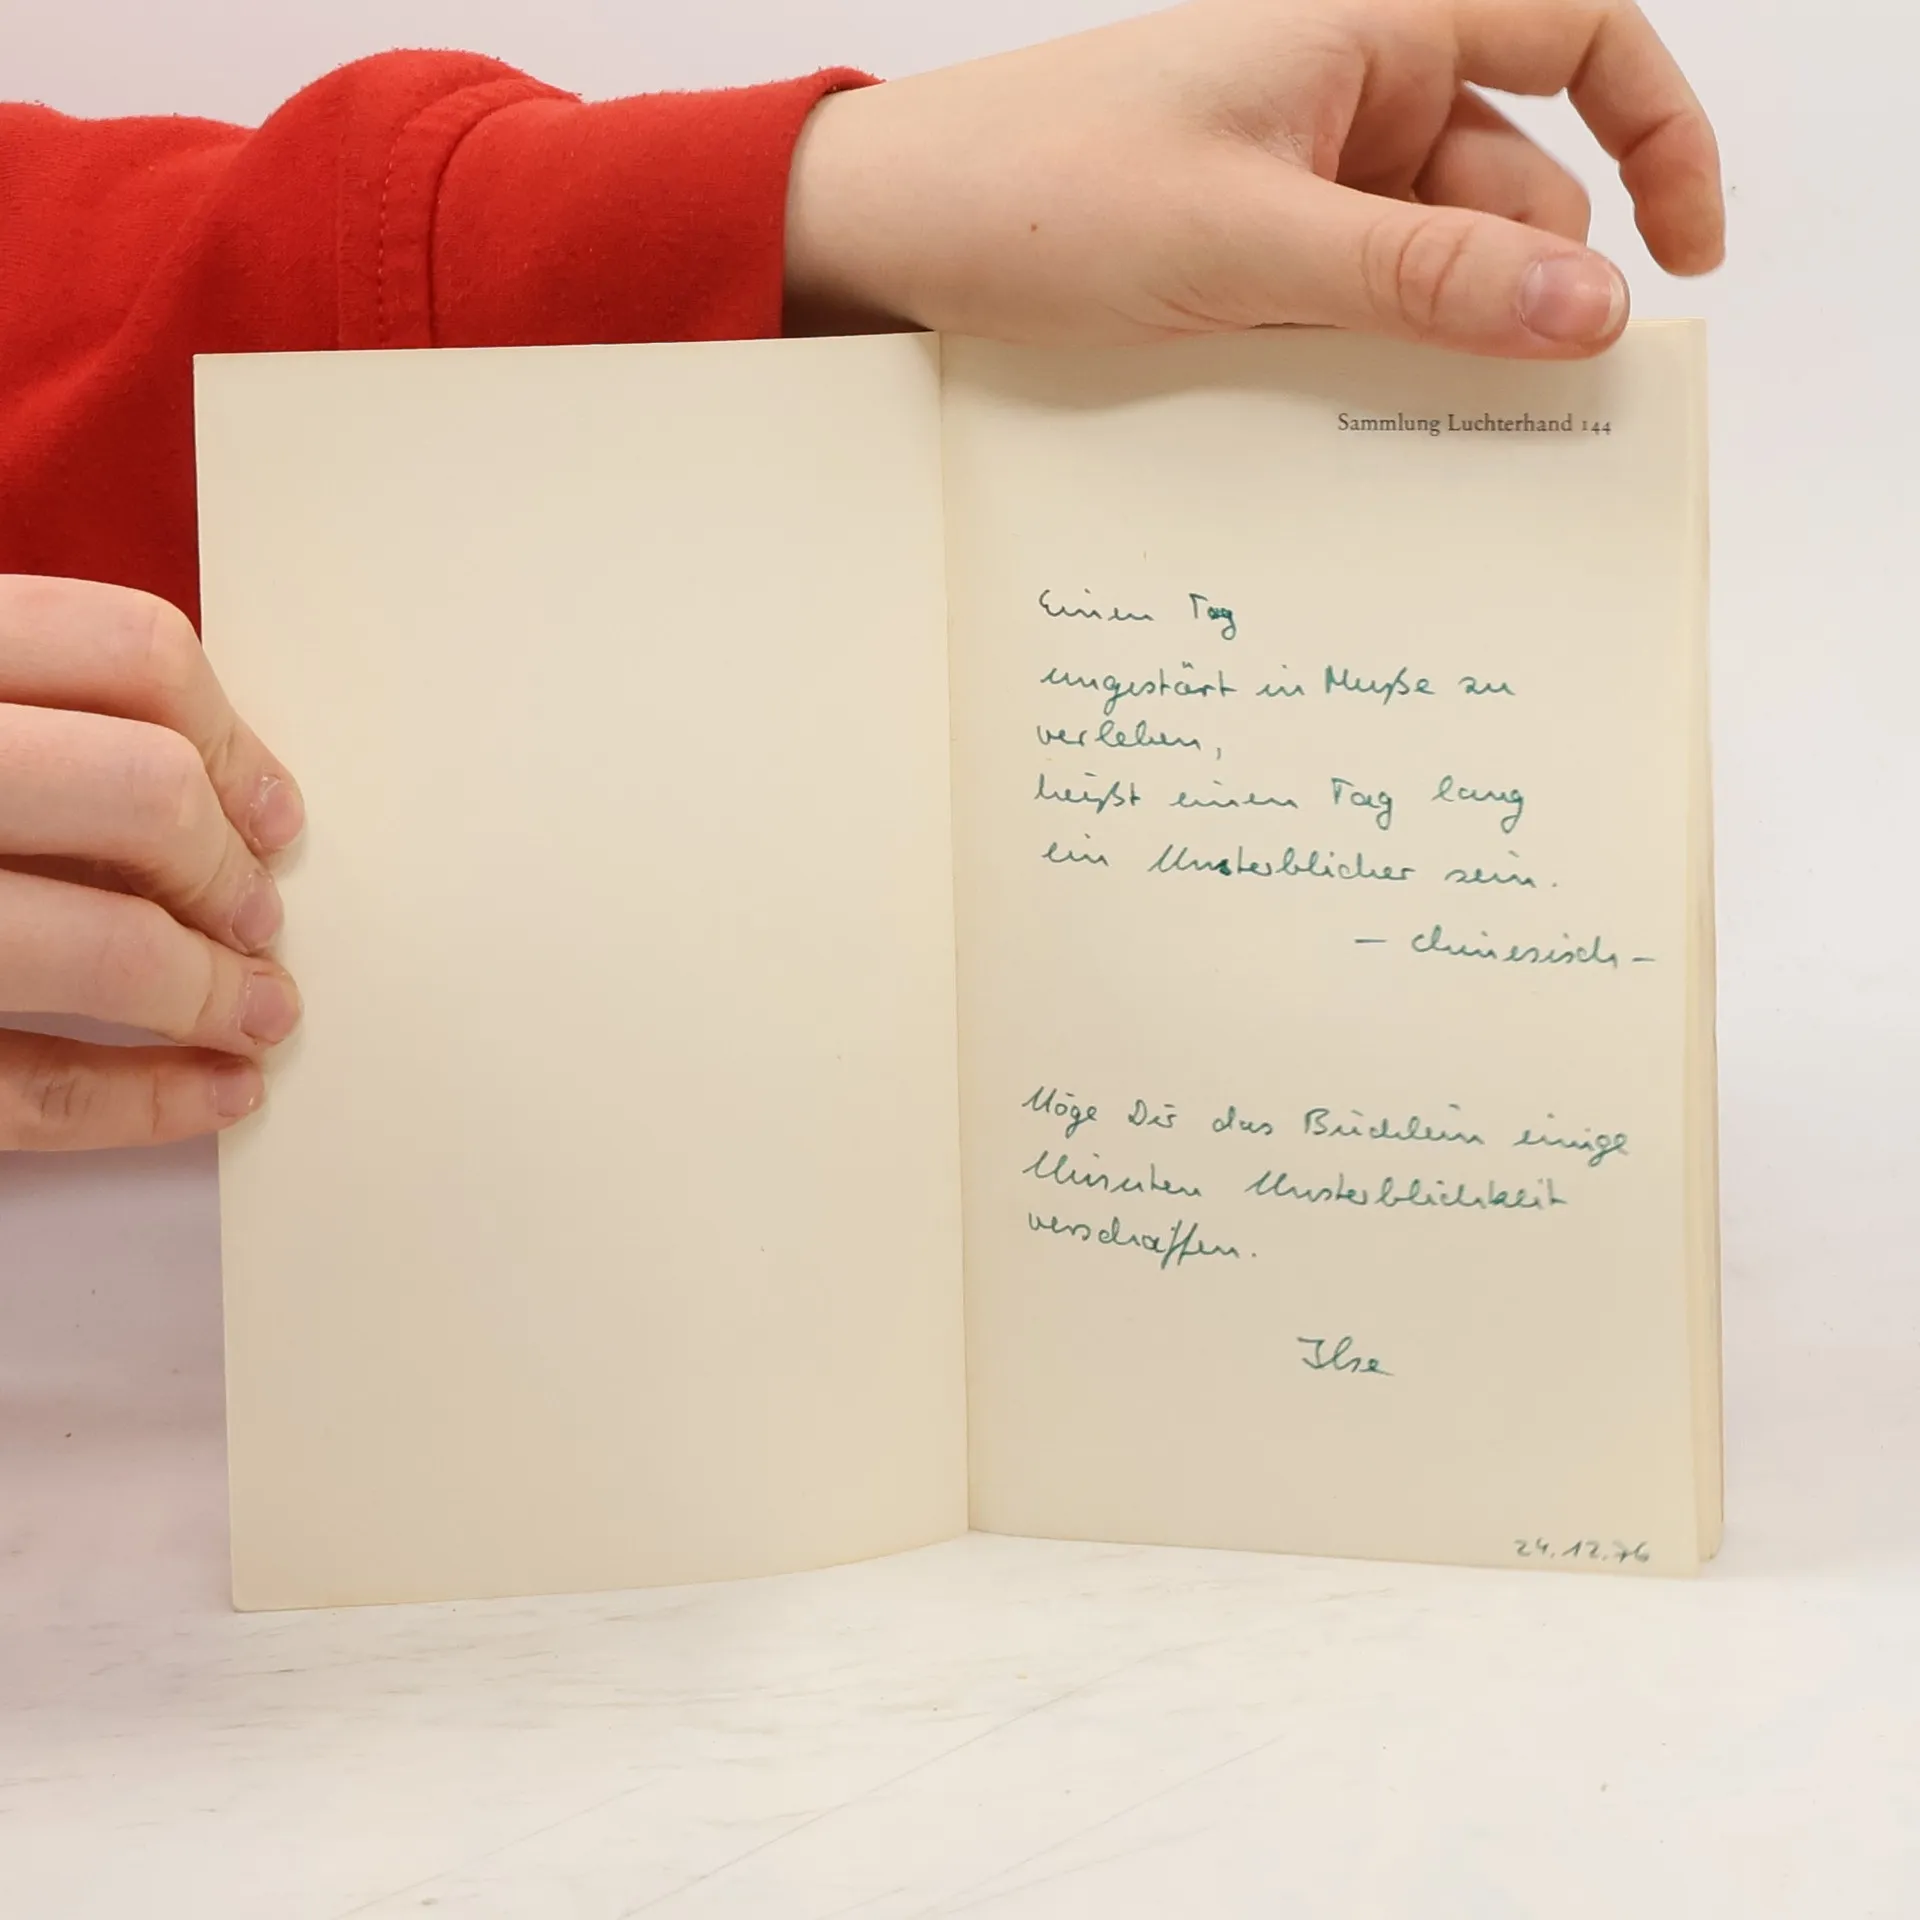 Sammlung Luchterhand 144
Einen Tag
ungestört in Muße zu
verleben,
heißt einen Tag lang
ein Unsterblicher sein.
– chinesisch –
Möge Dir das Büchlein einige
Minuten Unsterblichkeit
verschaffen.
Ilse
24.12.76